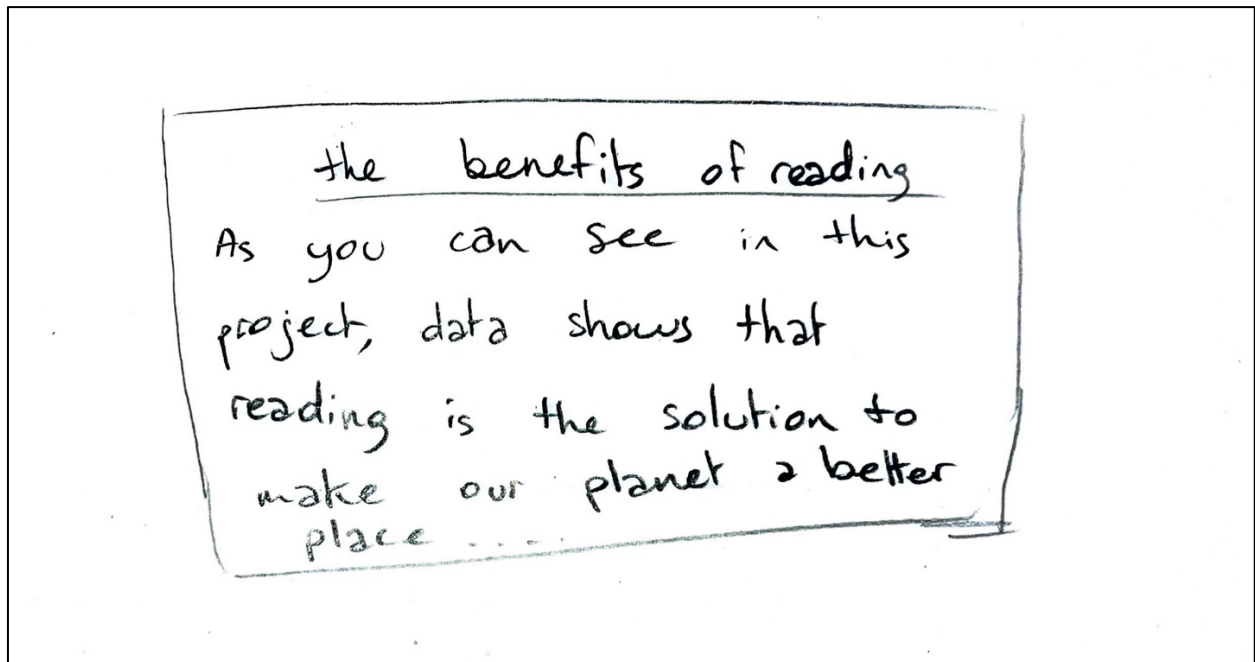 the benefits of reading
As you can see in this
project, data shows that
reading is the solution to
make our planet a better
place .....